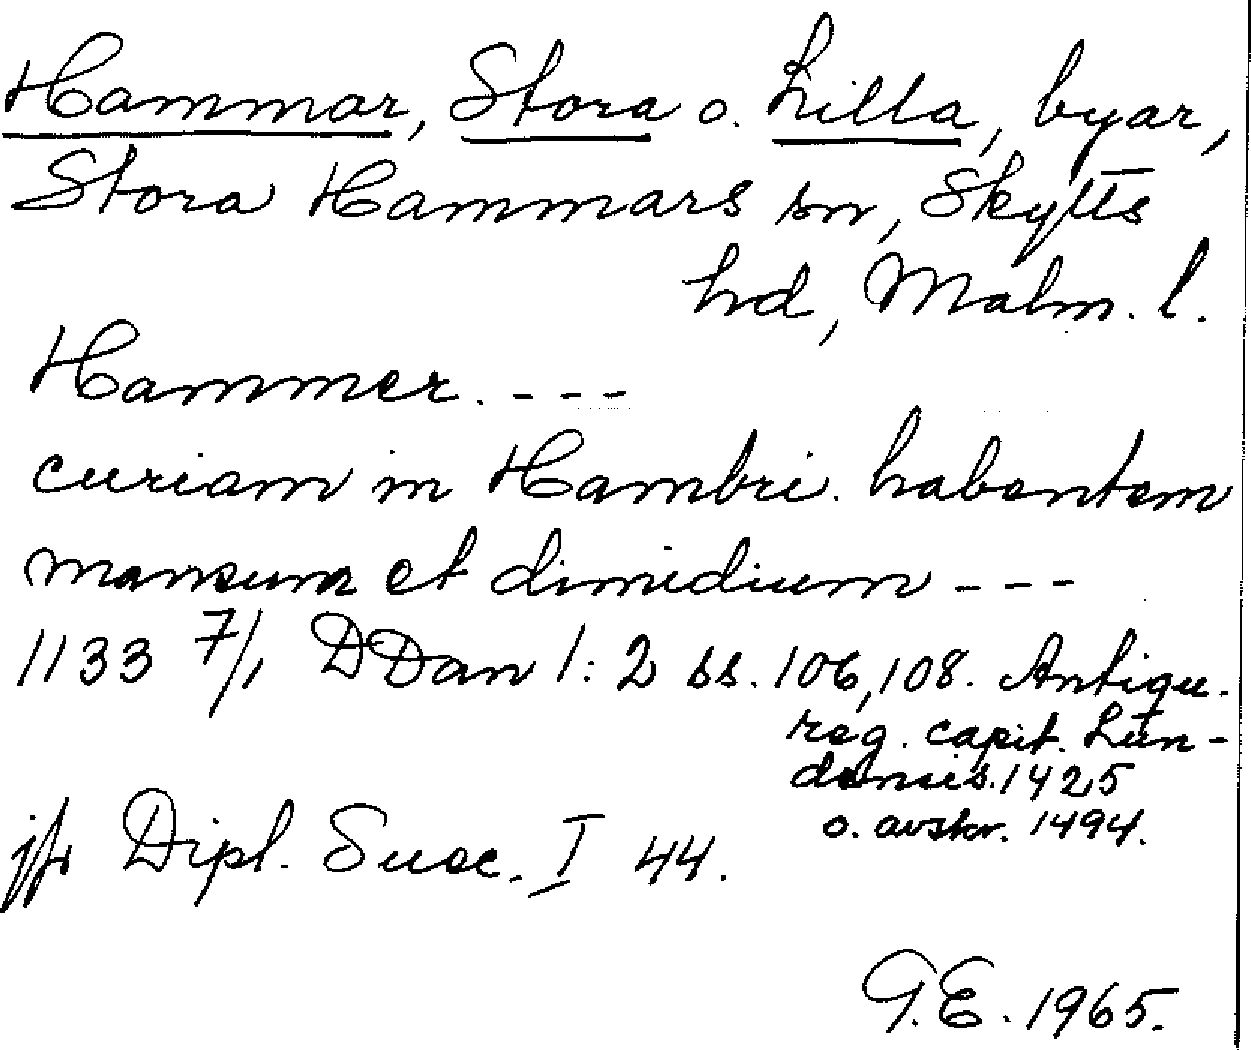 Hammar, Stora o. Lilla, byar,
Stora Hammars sn, Skytts
hd, Malm. l.
Hammer. ---
curiam in Hambri. habentem
mansum et dimidium ---
1133 7/1 DDan 1:2 ss. 106, 108. Antiqu.
reg. capit. Lun-
densis. 1425
o. avskr. 1494.
jfr Dipl. Suec. I 44.
G.E. 1965.